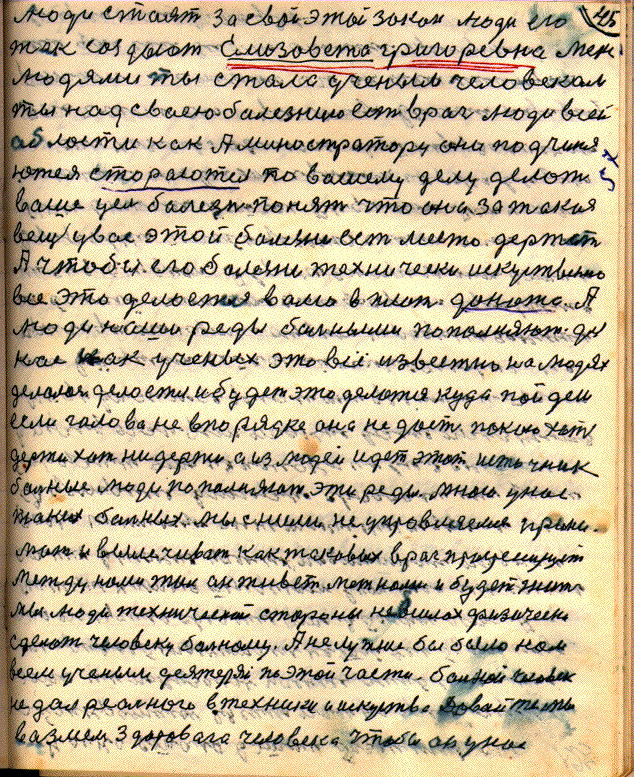 45
люди стаят за свой этой закон люди его
так создают Елизовета григоревна меж
людями ты стала ученым человекам
ты над своею болезнию ест врач люди всей
области как Администратору они подчиня
ются стораются по вашему делу делают
ваше цел балезн понят что она за такая
вещ увас этой болезни ест место держат
А чтобы его болезни технически искуствено
все это делоется вамо в план доното. А
люди нашы реды болными пополняют. ды
нас как ученых это всё известно на людях
делалос делоется и будет это делатся куда пойдеш
если галова не впорядке она не даст покою хот
держи хот нидержи, а из людей идет этот источник
болные люди пополняют эти реды много у нас
таких болных. мы сними не управляемся прини
мат и вылечиват как таковых враг прогресирует
между нами так он живет меж нами и будет жит
мы люди технической стороны не в силах физически
сделат человеку болному. А нелутше бы было нам
всем ученым деятеря по этой части. болной человек
не дал реального в техники и искуство давайте мы
возмем здоровага человека чтобы он у нас